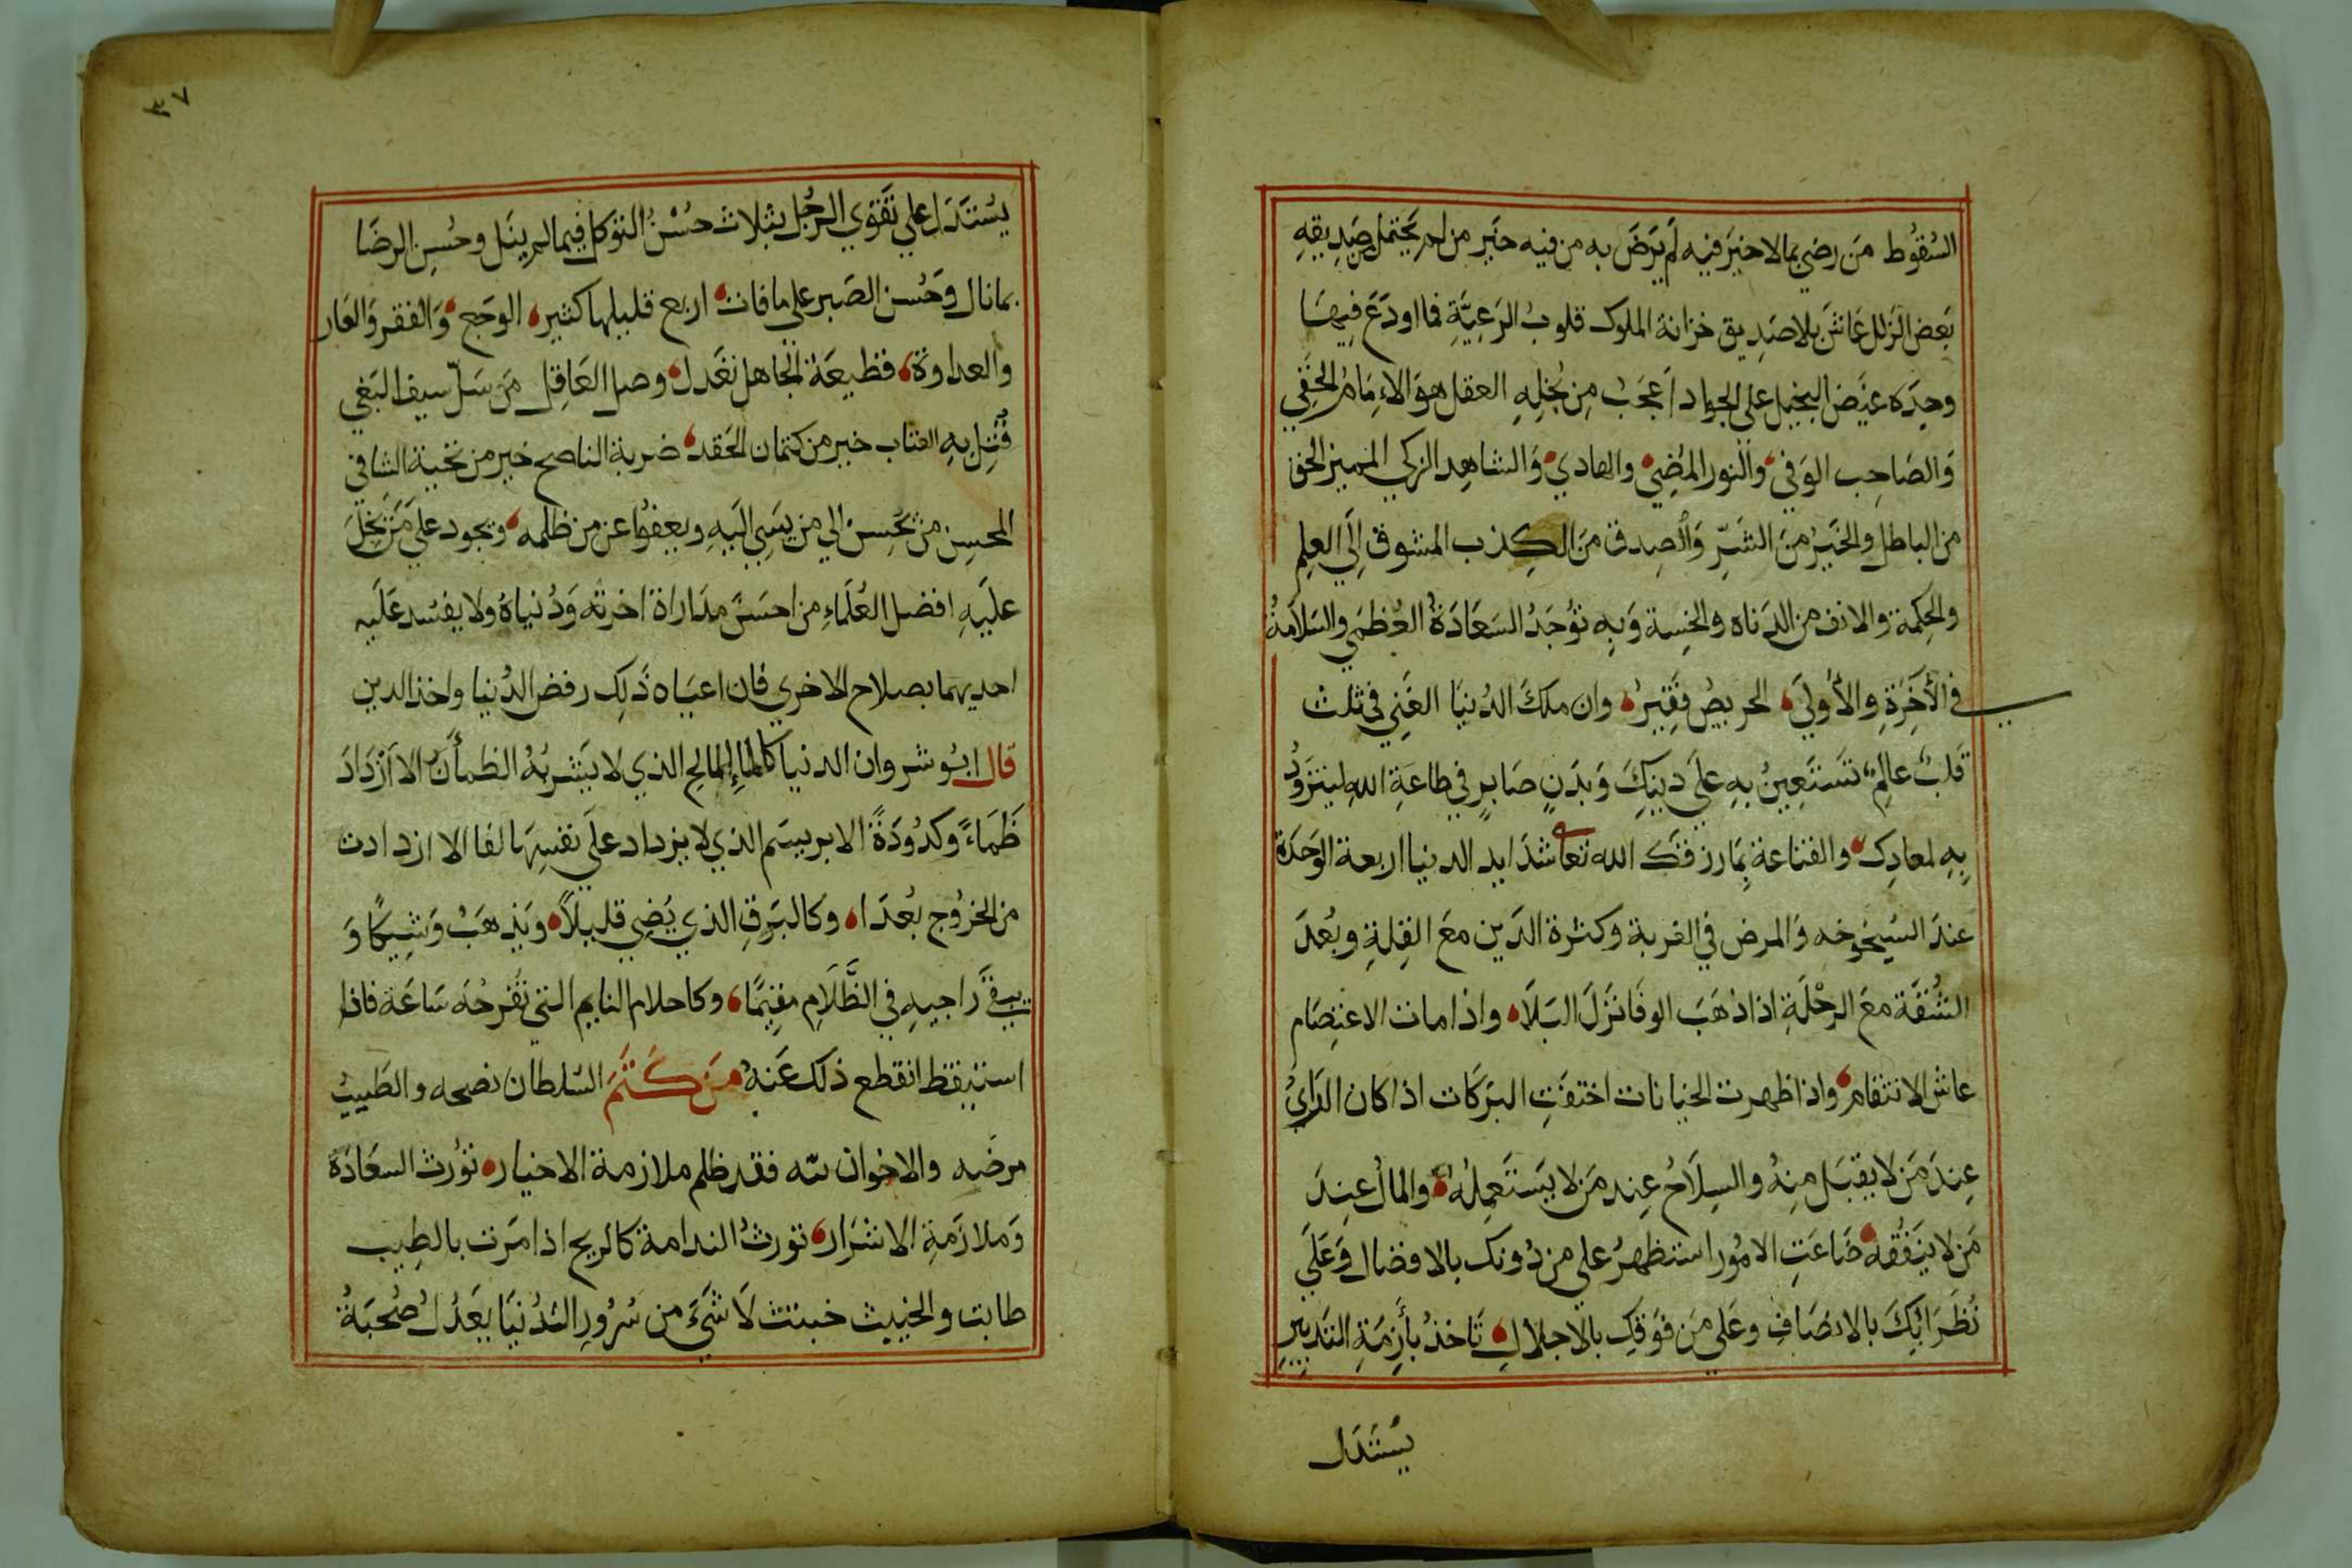 السُقُوط مَن رضي بمالا خيرَ فيه لَم يَرضَ به من فيه خير من لم يحتمل من صَدِيقهِ
بَعض الزلل عَاشَ بلا صَدِيق خزانة الملوك قلوبُ الرَعِيَّةِ فما اودَعَ فِيهَا
وجدَه عيَض البخيل على الجواد اَعجَبُ مِن بُخلِهِ العقل هوَ الاِمَامُ الحَفِي
وَالصَاحِب الوَفي والنور المُضِي والهادي وَالشاهِد الزكي المميز الحق
من الباطل والخَيرُ منَ الشَرِّ وَالصِدق مَن الكِذب المشوق اِلَي العِلِم
والحِكمة والانف من الدَناه والخِسة وَبِهِ تُوجَدُ السَعَادَةُ العُظمَي والسَلاَمةُ
في الأخَرَةِ والأُولَي الحريصُ فَقِيرُ وان ملكَ الدُنيَا الغَني في ثلث
قَلبٌ عالِم تَستَعِينُ بِهِ علَي دِينِكَ وَبَدَنٍ صَابِرٍ في طاعَةِ اللهِ ليتزَوُد
بِهِ لمعادِك والقناعة بِمَا رزقك الله تعا شدَايد الدنيا اربعة الوَحدَة
عندَ الشيخوخه وَالمرض في الغربة وكثرة الدَين معَ القِلةِ وبُعدَ
الشُقَة معَ الرِحْلَةِ اذا ذهَبَ الوفَا نَزَلَ البَلَا واذا مات الاعتِصَام
عاش الانتقام واذا ظهرت الخيانات اختفَتِ البَرَكَات اذا كان الرَايُ
عِندَ مَن لا يقبَل مِنهُ والسِلَاحُ عِند مَن لا يَستَعمِلهُ والمالُ عِندَ
مَن لا يَنفُقه ضَاعَتِ الامُور استظهِرُ على من دُونك بالافضال وَعَلَي
نُظَرَائِكَ بالانصَافِ وعَلي مَن فَوَقكِ بالاجلالِ تَاخذُ بأَزِمَةِ التَدبِيرِ
يَستَدل
٣٧
يسُتَدَل علي تَقَوي الرجُل بثلاث حسُنُ التوكل فيما لم ينَل وحُسنِ الرضَا
بمانال وَحُسن الصَبر علي ما فات اربع قليلها كثير الوجَع وَالفقر وَالعَار
والعداوة فقطيعَة الجاهل تعَدل وصل العَاقِل مَن سَلّ سيف البَغي
قُتِل بِهِ العتاب خير من كتمان الحَقد ضربة الناصح خير من تحية الشاني
المحسِن من يُحسِنُ الي من يسَي اليَهِ ويعفوُا عن من ظلمه ويجود علي مَن بَخِلَ
علَيهِ افضل العُلمَاءِ من احسَنَ مدَاراة اخرته وَدُنياهُ ولا يفسُد عَلَيه
احديهما بصلاح الاخري فان اعيَاه ذَلِك رفض الدُنيا واخذ الدين
قال ابو شروان الدنيا كالماءِ المالح الذي لا يَشربُهُ الظمأَن الا ازْدَادَ
ظَمَاءً وكدُودَةً الابريسَم الذي لا يزداد علَي نفسِهَا لفا الا ازدادت
من الخرُوج بعُدَا وكالبَرقِ الذي يُضِي قليلاً ويَذهَبُ وَشِيكًا وَ
يبقَي رَاجيهِ في الظَّلَامِ مقِيمًا وكاحلام النايم التي تفَرحُه سَاعَة فاذا
استيقظ انقطع ذلك عَنهُ مَن كَتَمَ السُلطان نصحه والطَبيبُ
مرضَه والاخوان بثه فقد ظلم ملازمة الاخيار تورُث السعَادَة
وَملازَمَةِ الاشرَار تورثُ الندامة كالريح اذا مَرت بالطِيب
طابت والخبيث خبثت لَا شَيَ من سُرُورِ الدُنيَا يعَدُلُ صُحبَةُ